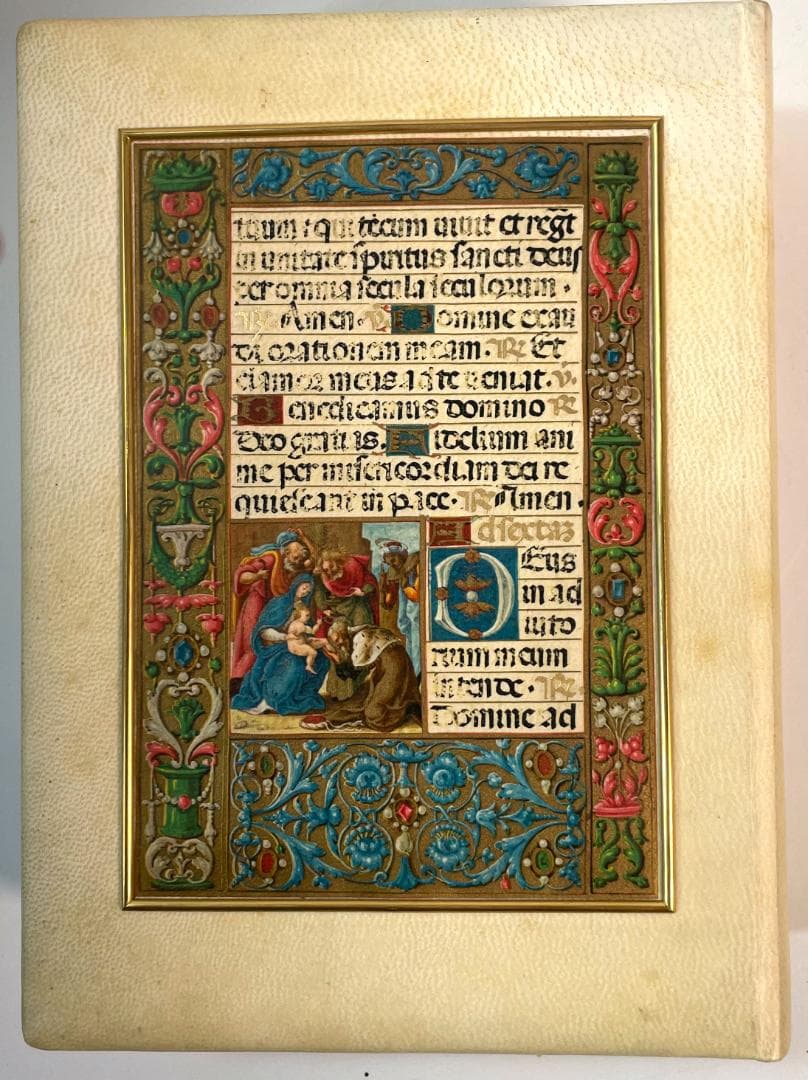 tuum: qui tecum uiuit et regt
in unitate spiritus sancti deus
per omnia secula seculorum.
R Amen. V Domine exau
di orationem meam. R Et
clamor meus ad te ueniat. V.
Benedicamus domino R
Deo gratias. Fidelium ani
me per misericordiam dei re
quiescant in pace. R Amen.
Ad sextaz
Deus
in ad
iuto
rium meum
intende. R.
Domine ad